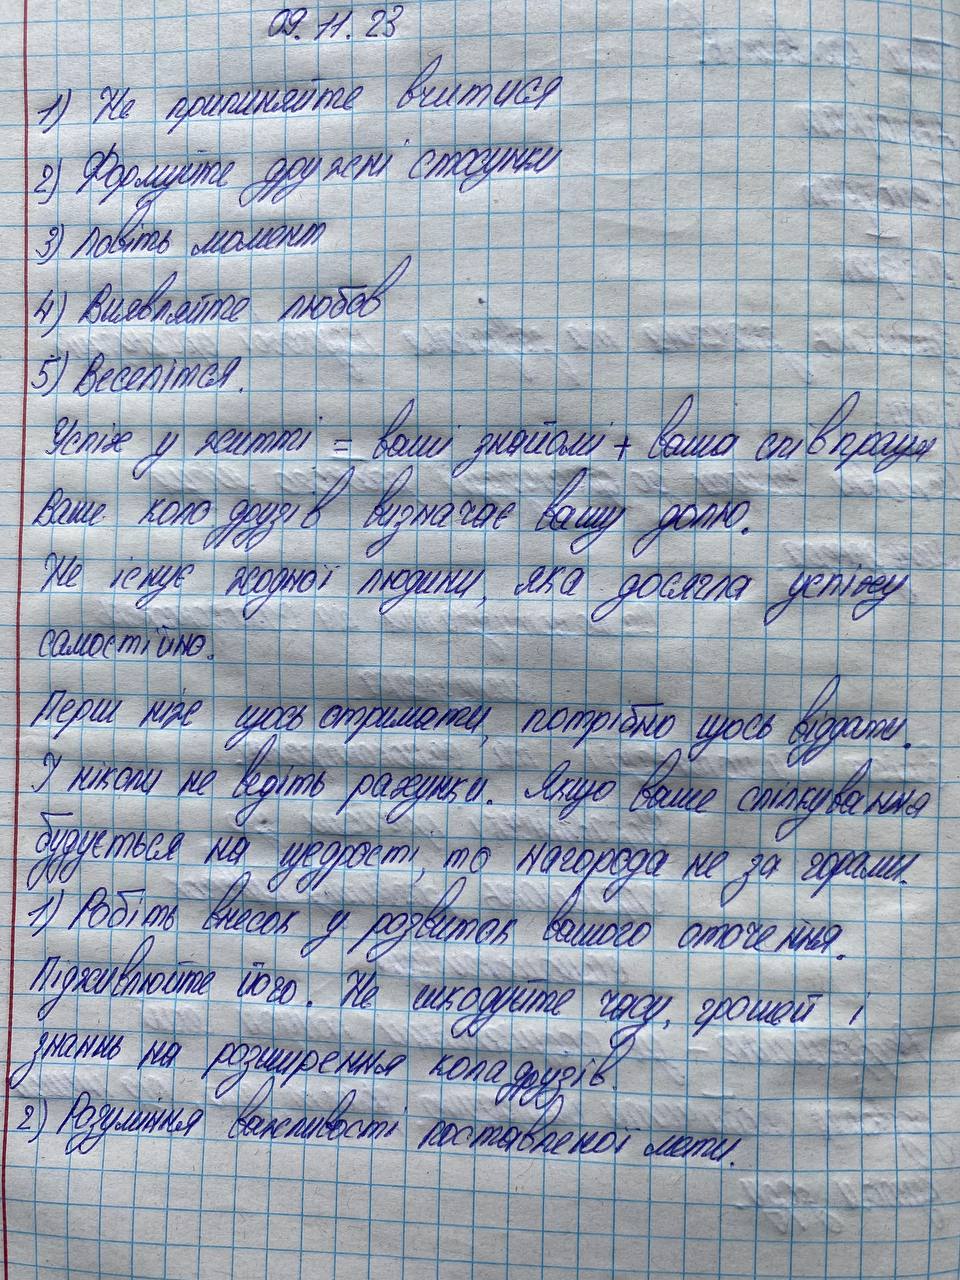 09.11.23
1) Не припиняйте вчитися
2) Формуйте дружні стосунки
3) Ловіть момент
4) Виявляйте любов
5) Веселітся.
Успіх у житті = ваші знайомі + ваша співпраця
Ваше коло друзів визначає вашу долю.
Не існує жодної людини, яка досягла успіху
самостійно.
Перш ніж щось отримати, потрібно щось віддати.
І ніколи не ведіть рахунки. Якщо ваше спілкування
будується на щедрості, то нагорода не за горами.
1) Робіть внесок у розвиток вашого оточення.
Підживлюйте його. Не шкодуйте часу, грошей і
знань на розширення кола друзів.
2) Розуміння важливості поставленої мети.